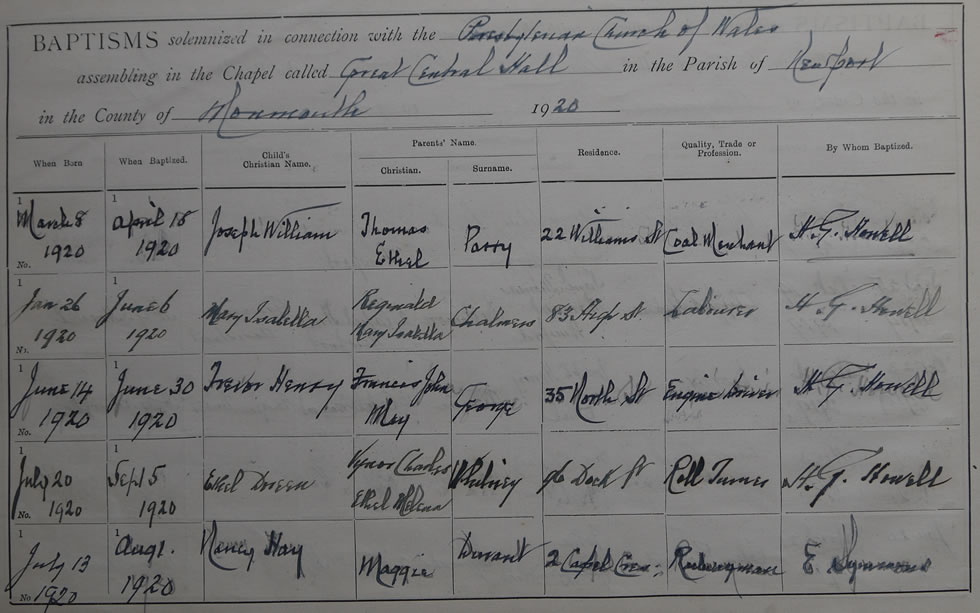 BAPTISMS solemnized in connection with the Presbyterian Church of Wales
assembling in the Chapel called Great Central Hall in the Parish of Newport
in the County of Monmouth 1920
When Born When Baptized. Child's Christian Name. Parents' Name. Christian. Surname. Residence. Quality, Trade or Profession. By Whom Baptized.
1 March 8 1 April 18 Joseph William Thomas Parry 22 Williams St Coal Merchant H. G. Howell
No. 1920 1920 Ethel
1 Jan 26 1 June 6 Mary Isabella Reginald Chalmers 83 High St. Labourer H. G. Howell
No. 1920 1920 Mary Isabella
1 June 14 1 June 30 Trevor Henry Francis John George 35 North St Engine Driver H. G. Howell
No. 1920 1920 May
July 20 1 Sept 5 Ethel Doreen Charles Dock St Roll Turner H. G. Howell
No. 1920 1920 Ethel
July 13 1 Aug 1. Nancy May Maggie Durant 2 Capel Cres: E.
No 1920 1920